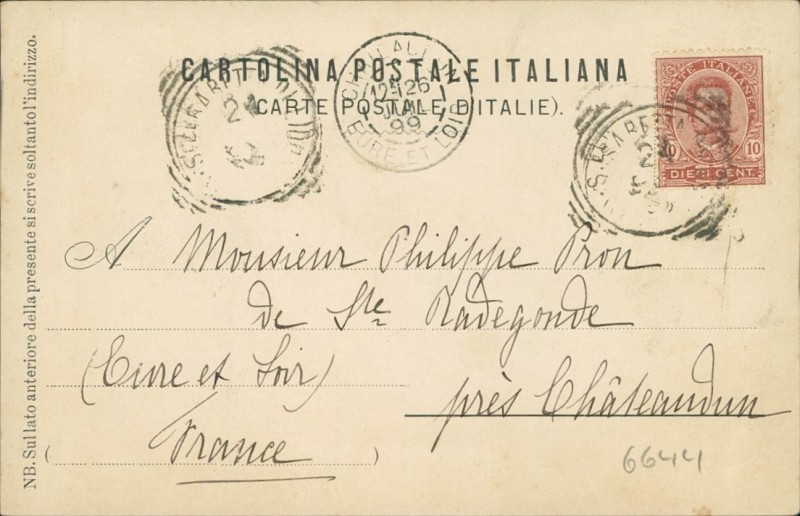 CARTOLINA POSTALE ITALIANA
(CARTE POSTALE D'ITALIE).
POSTE ITALIANE
10 10
DIECI CENT.
12 26
99
EURE ET LOIR
24
24
A Monsieur Philippe Pron
de Ste Radegonde
(Eure et Loir)
près Châteaudun
(France)
6644
NB. Sul lato anteriore della presente si scrive soltanto l'indirizzo.